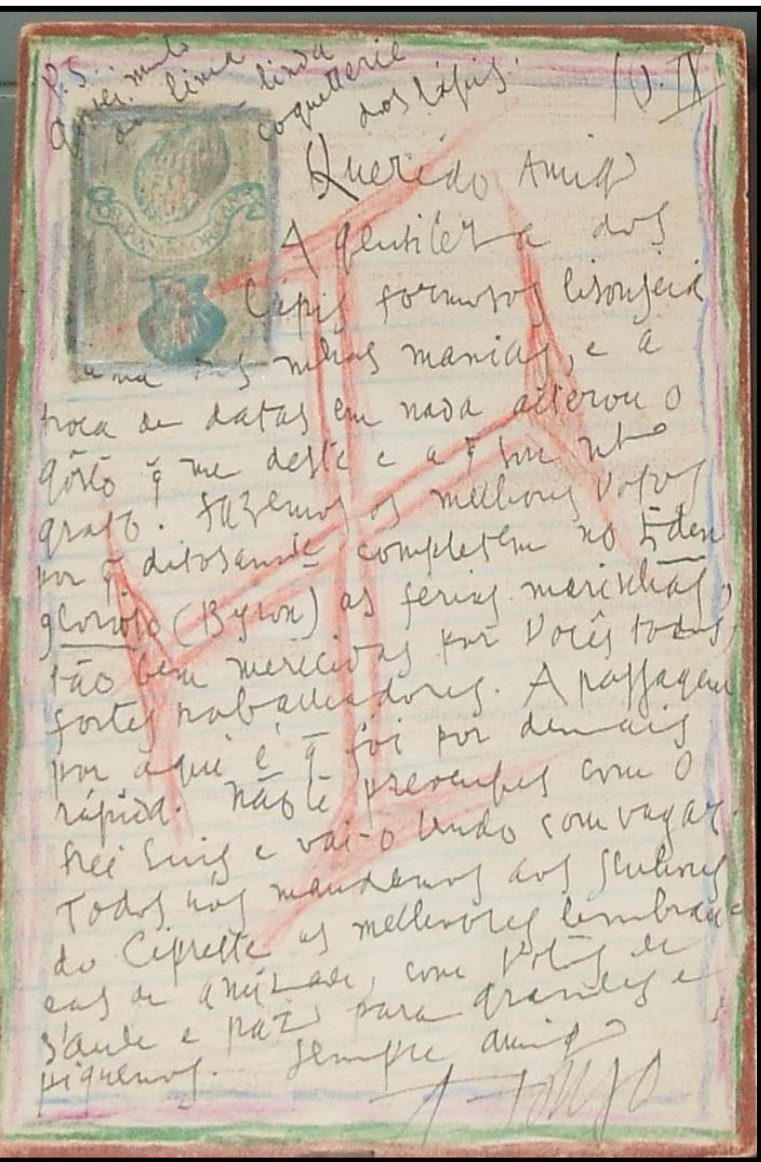 P.S.: muito
linda
coquetterie
dos lápis.
10.IX
Querido Amigo
A gentileza dos
lápis formosos lisonjeia
uma das minhas manias, e a
troca de datas em nada alterou o
gôsto q̃ me deste e a q̃ sou mto
grato. Fazemos os melhores votos
por q̃ ditosamte completem no Éden
glorioso (Byron) as férias marinhas,
tão bem merecidas por Vocês todos,
fortes trabalhadores. A passagem
por aqui é q̃ foi por demais
rápida. Não te preocupes com o
frei Luis e vai-o lendo com vagar.
Todos nós mandamos aos senhores
do Cipreste as melhores lembran-
ças de amizade, com votos de
saúde e paz para grandes e
piquenos. Sempre amigo